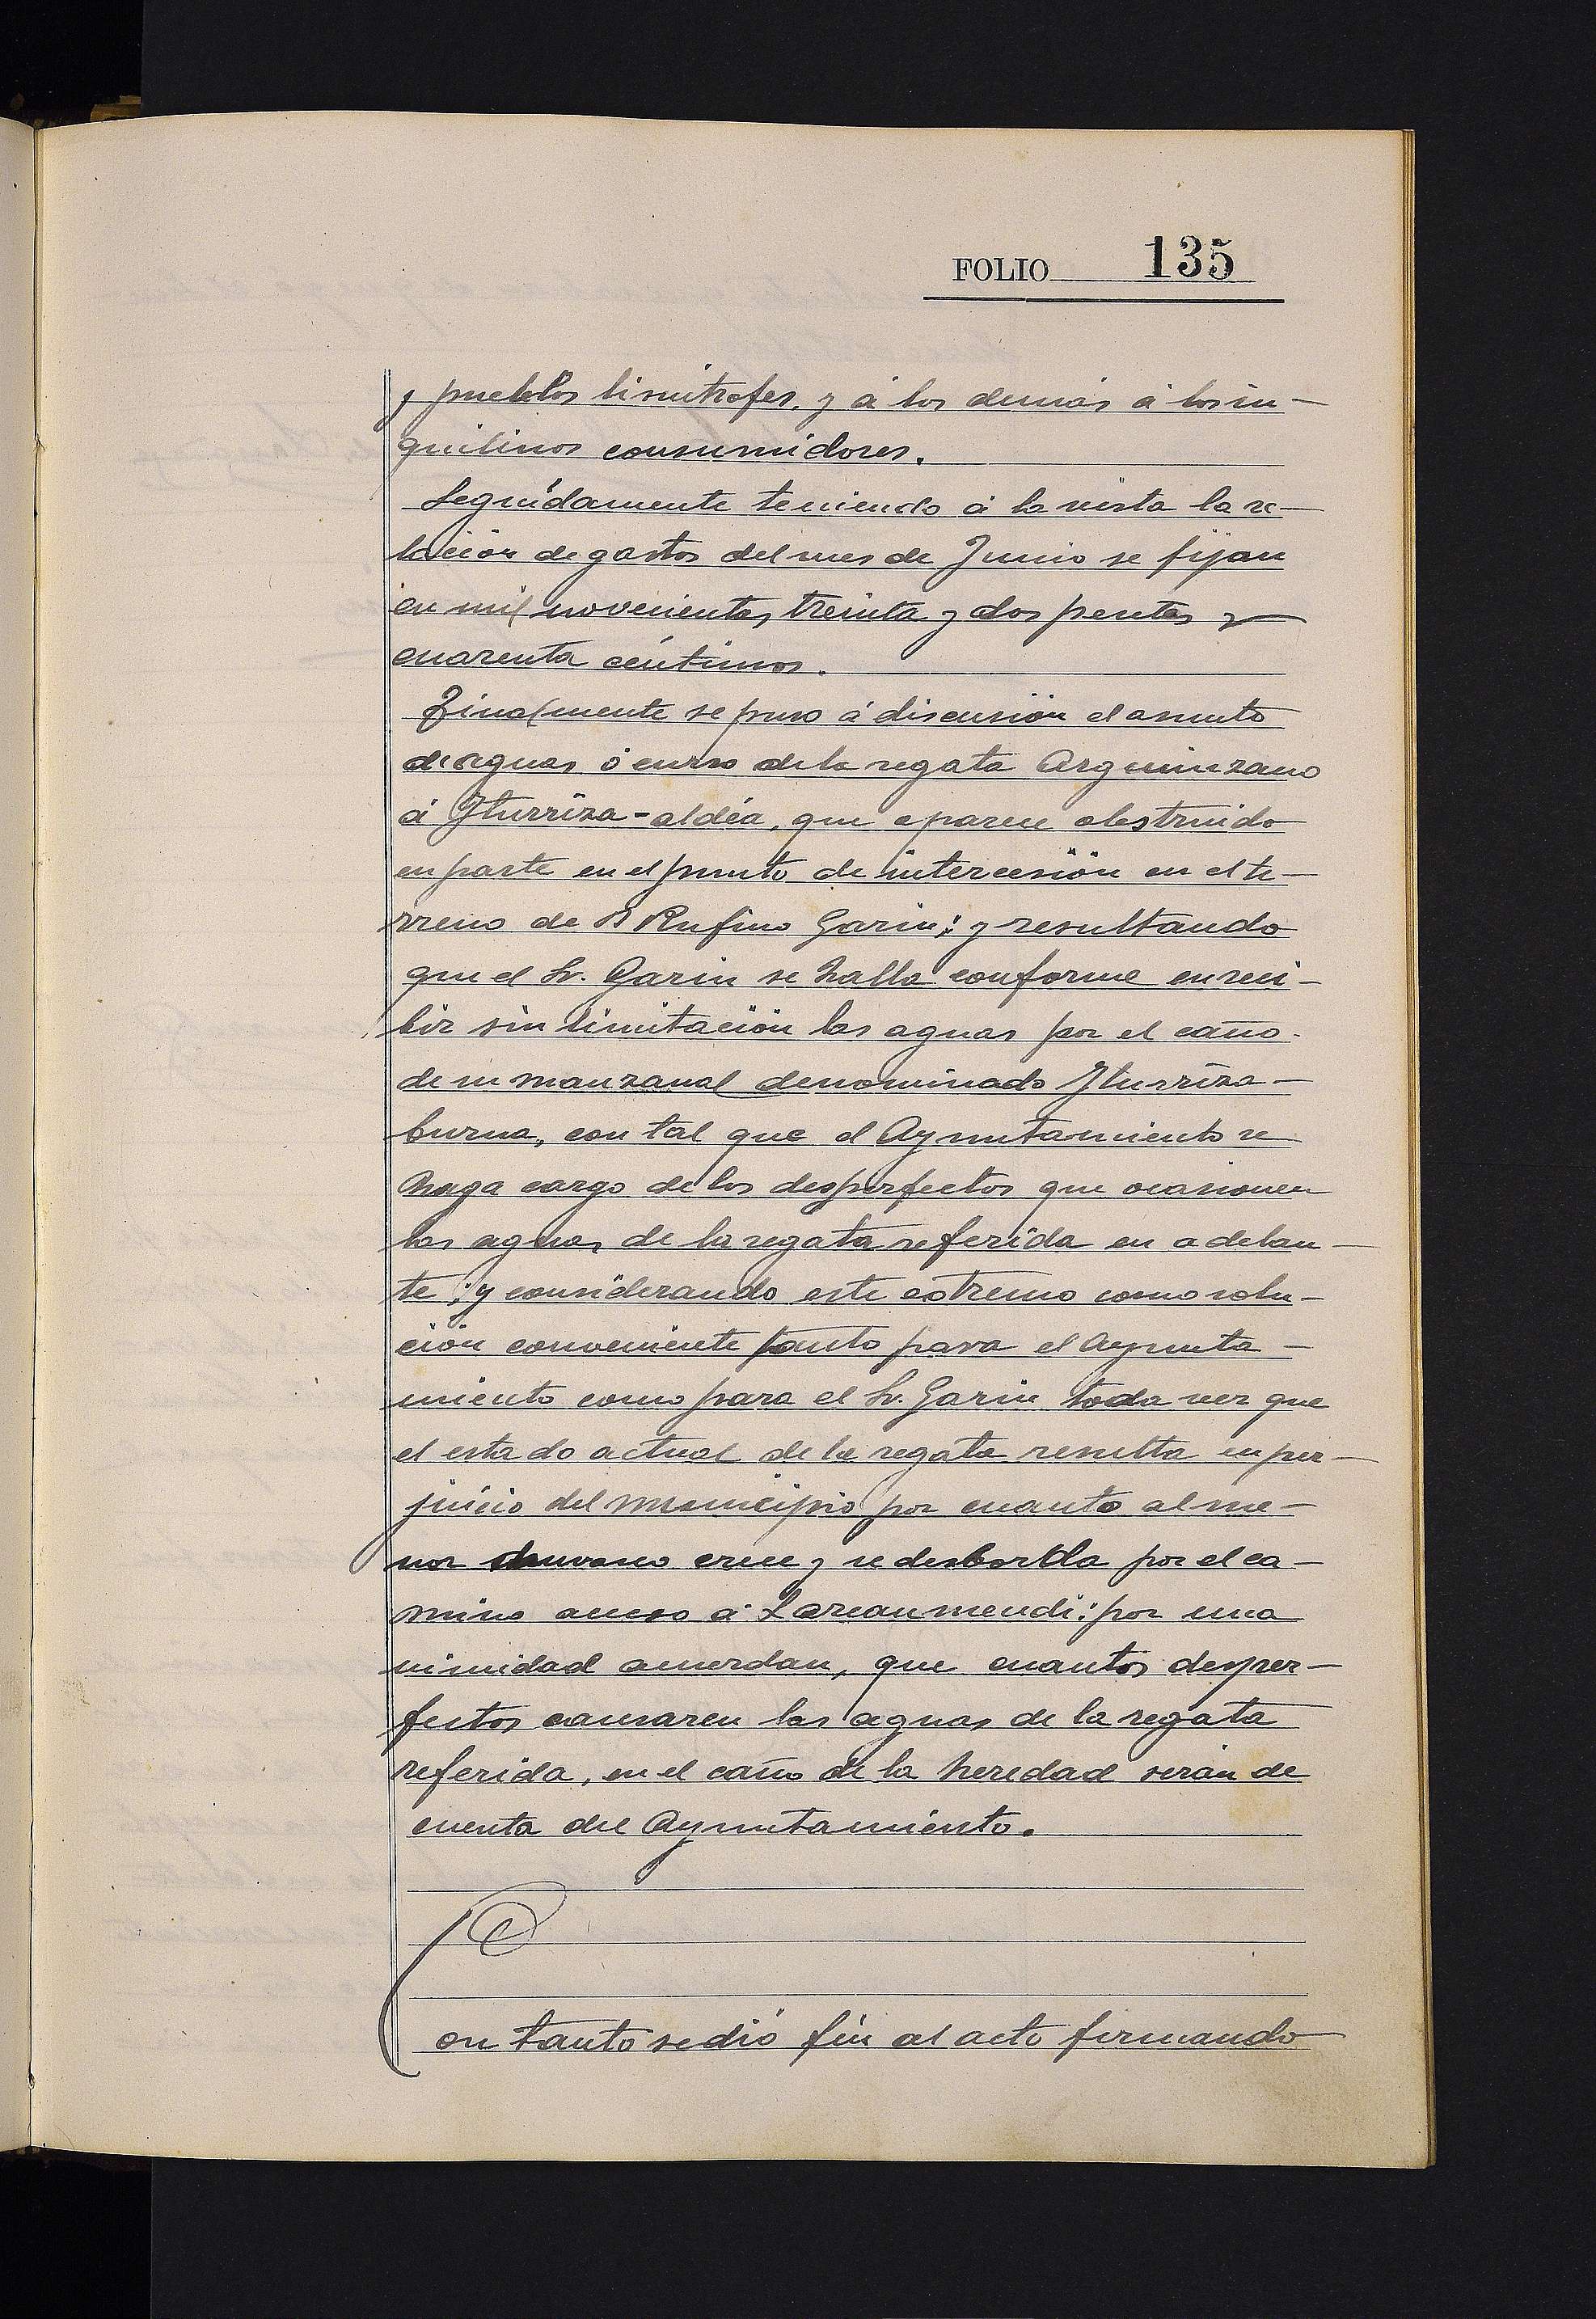 FOLIO 135
y pueblos limítrofes, y á los demás á los in-
quilinos consumidores.
Seguídamente teniendo á la vista la re-
lación de gastos del mes de Junio se fijan
en mil novecientas treinta y dos pesetas y
cuarenta céntimos.
Finalmente se puso á discusión el asunto
de aguas ó curso de la regata Arguinzano
á Yturriza-aldéa, que aparece obstruido
en parte en el punto de intercesión en el te-
rreno de D Rufino Garin; y resultando
que el Sr. Garin se halla conforme en reci-
bir sin limitación las aguas por el caño
de su manzanal denominado Yturriza-
burua, con tal que el Ayuntamiento se
haga cargo de los desperfectos que ocasionen
las aguas de la regata referida en adelan-
te; y considerando este estremo como solu-
ción conveniente tanto para el Ayunta-
miento como para el Sr. Garin toda vez que
el estado actual de la regata resulta en per-
juicio del municipio por cuanto al me-
nor chuvasco crece y se desborda por el ca-
mino acceso á Larcaumendi: por una
nimidad acuerdan, que cuantos desper-
fectos causaren las aguas de la regata
referida, en el caño de la heredad serán de
cuenta del Ayuntamiento.
Con tanto se dió fin al acto firmando